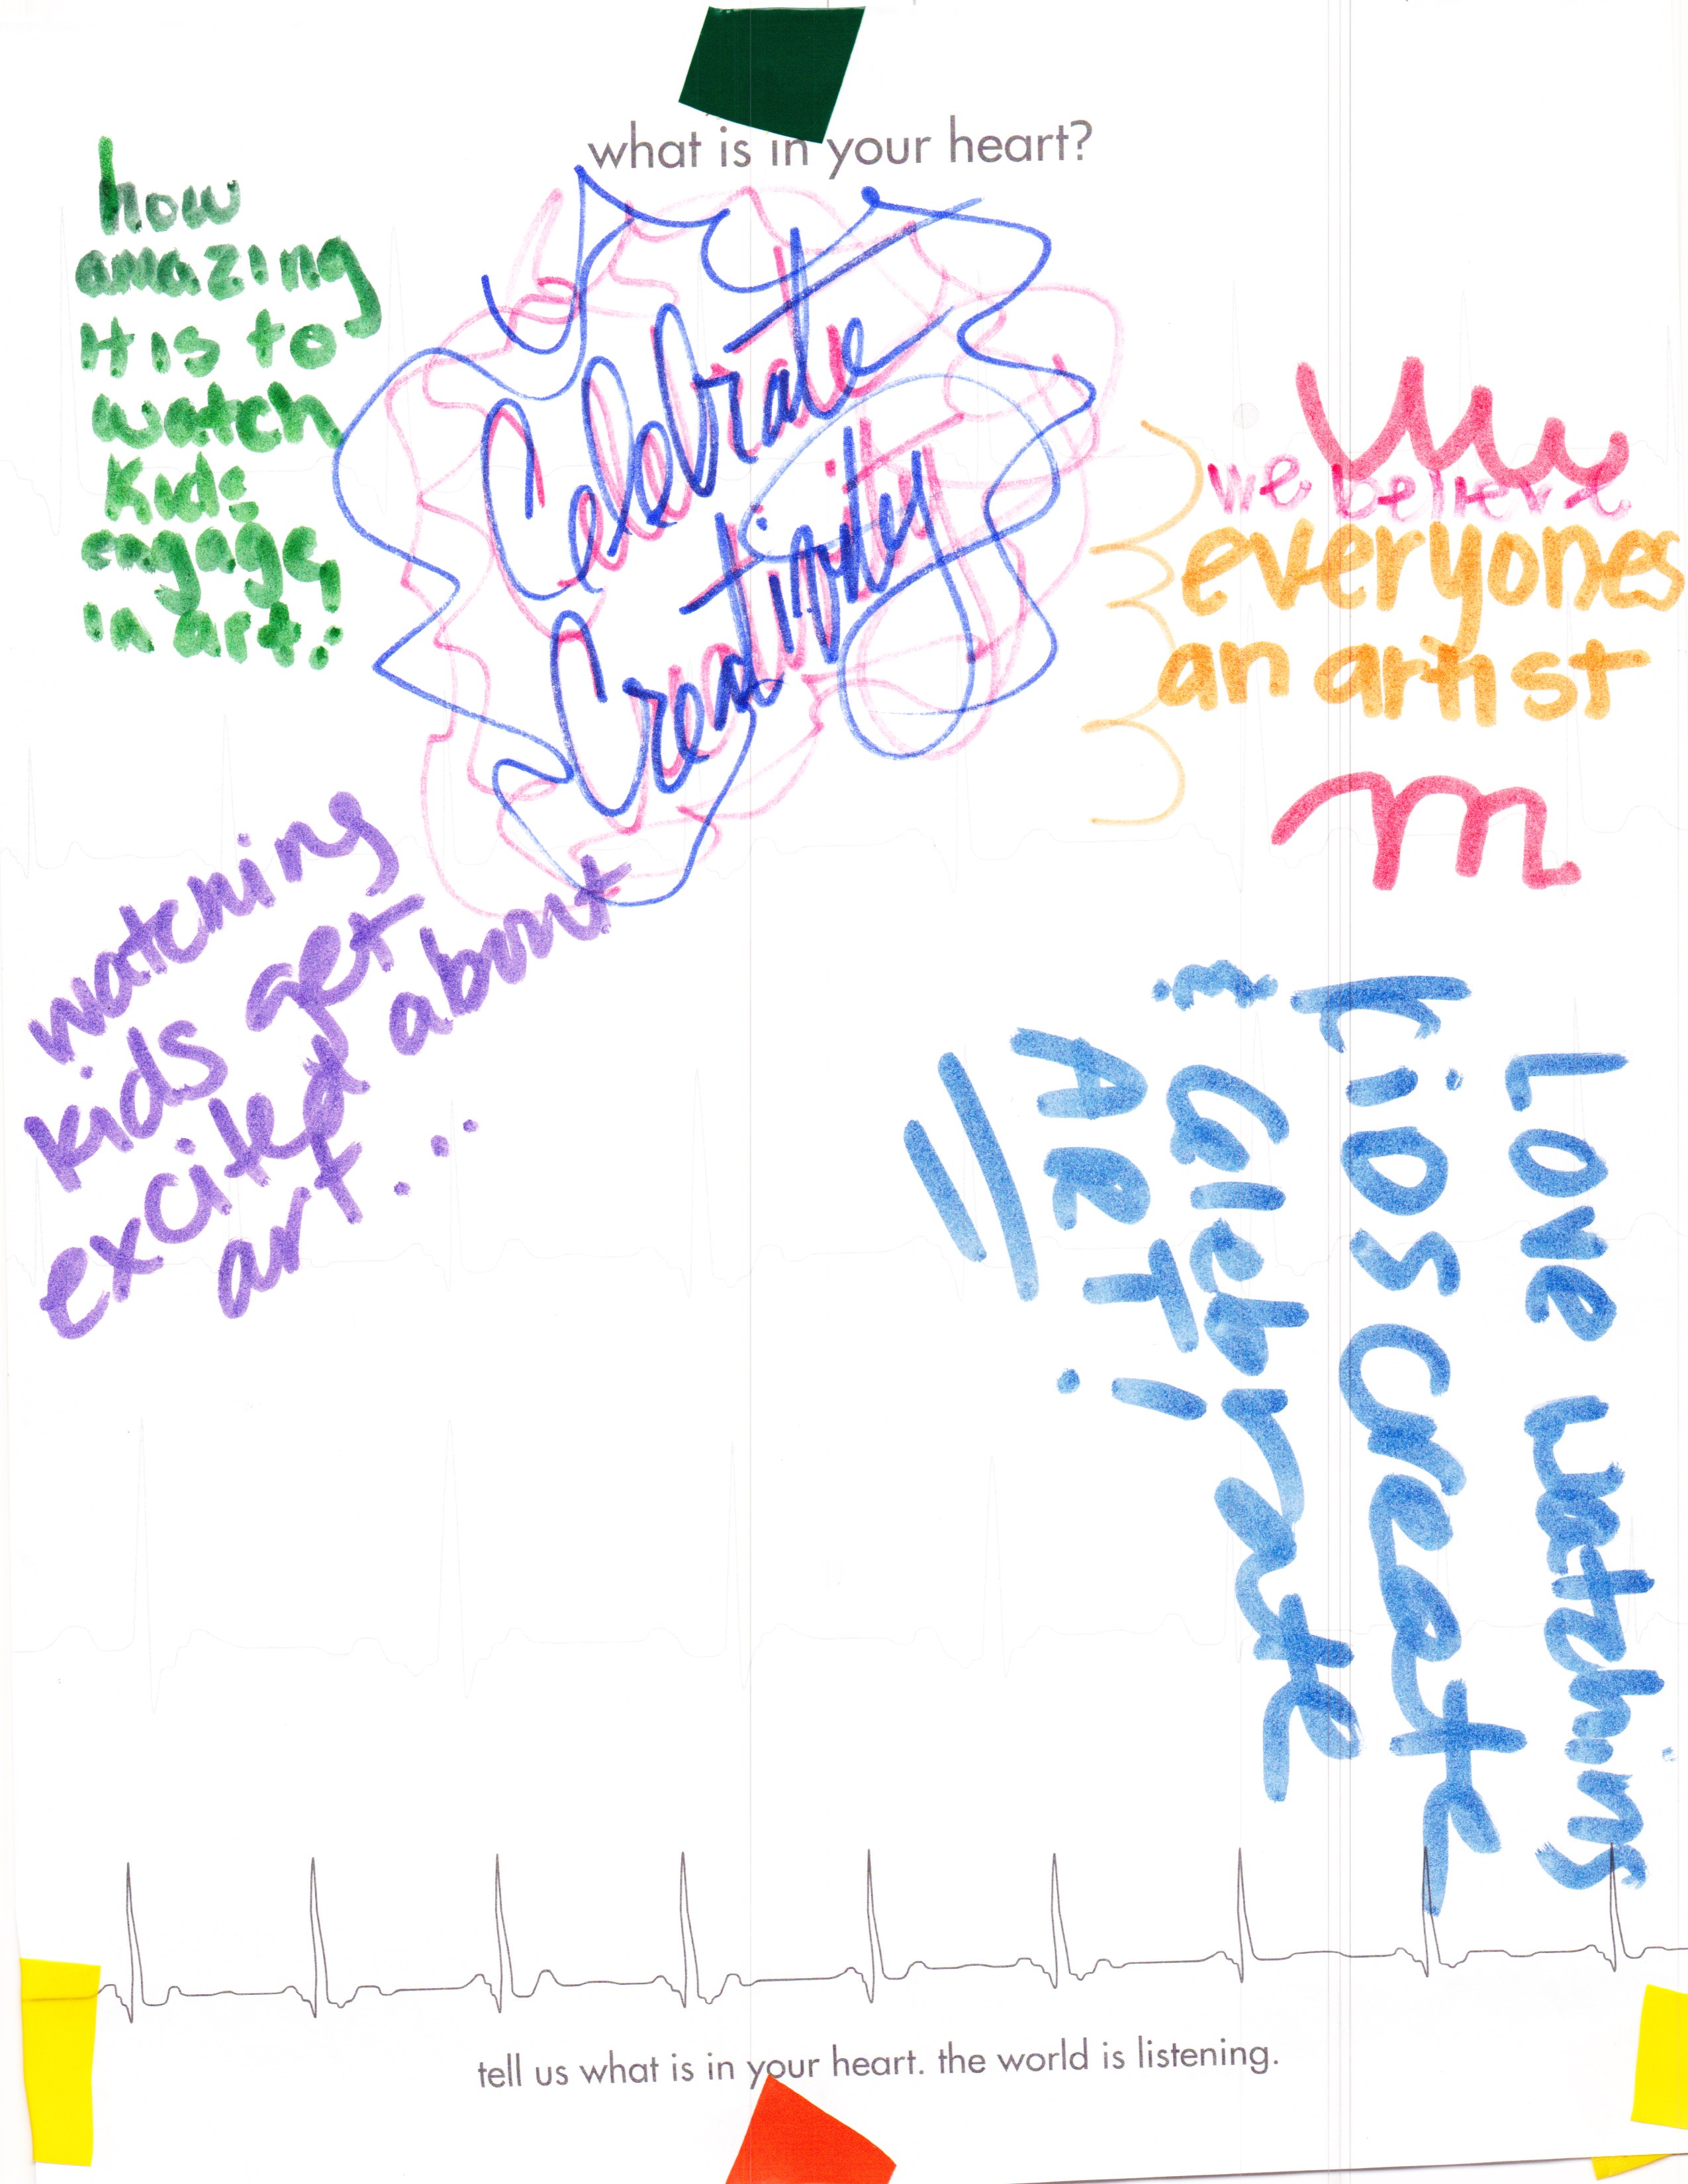 what is in your heart?
how
amazing
it is to
watch
kids
engage
in art!
Celebrate
Creativity
we believe
everyones
an artist
watching
kids get
excited about
art...
Love watching
kids create
& Celebrate
ART!
tell us what is in your heart. the world is listening.